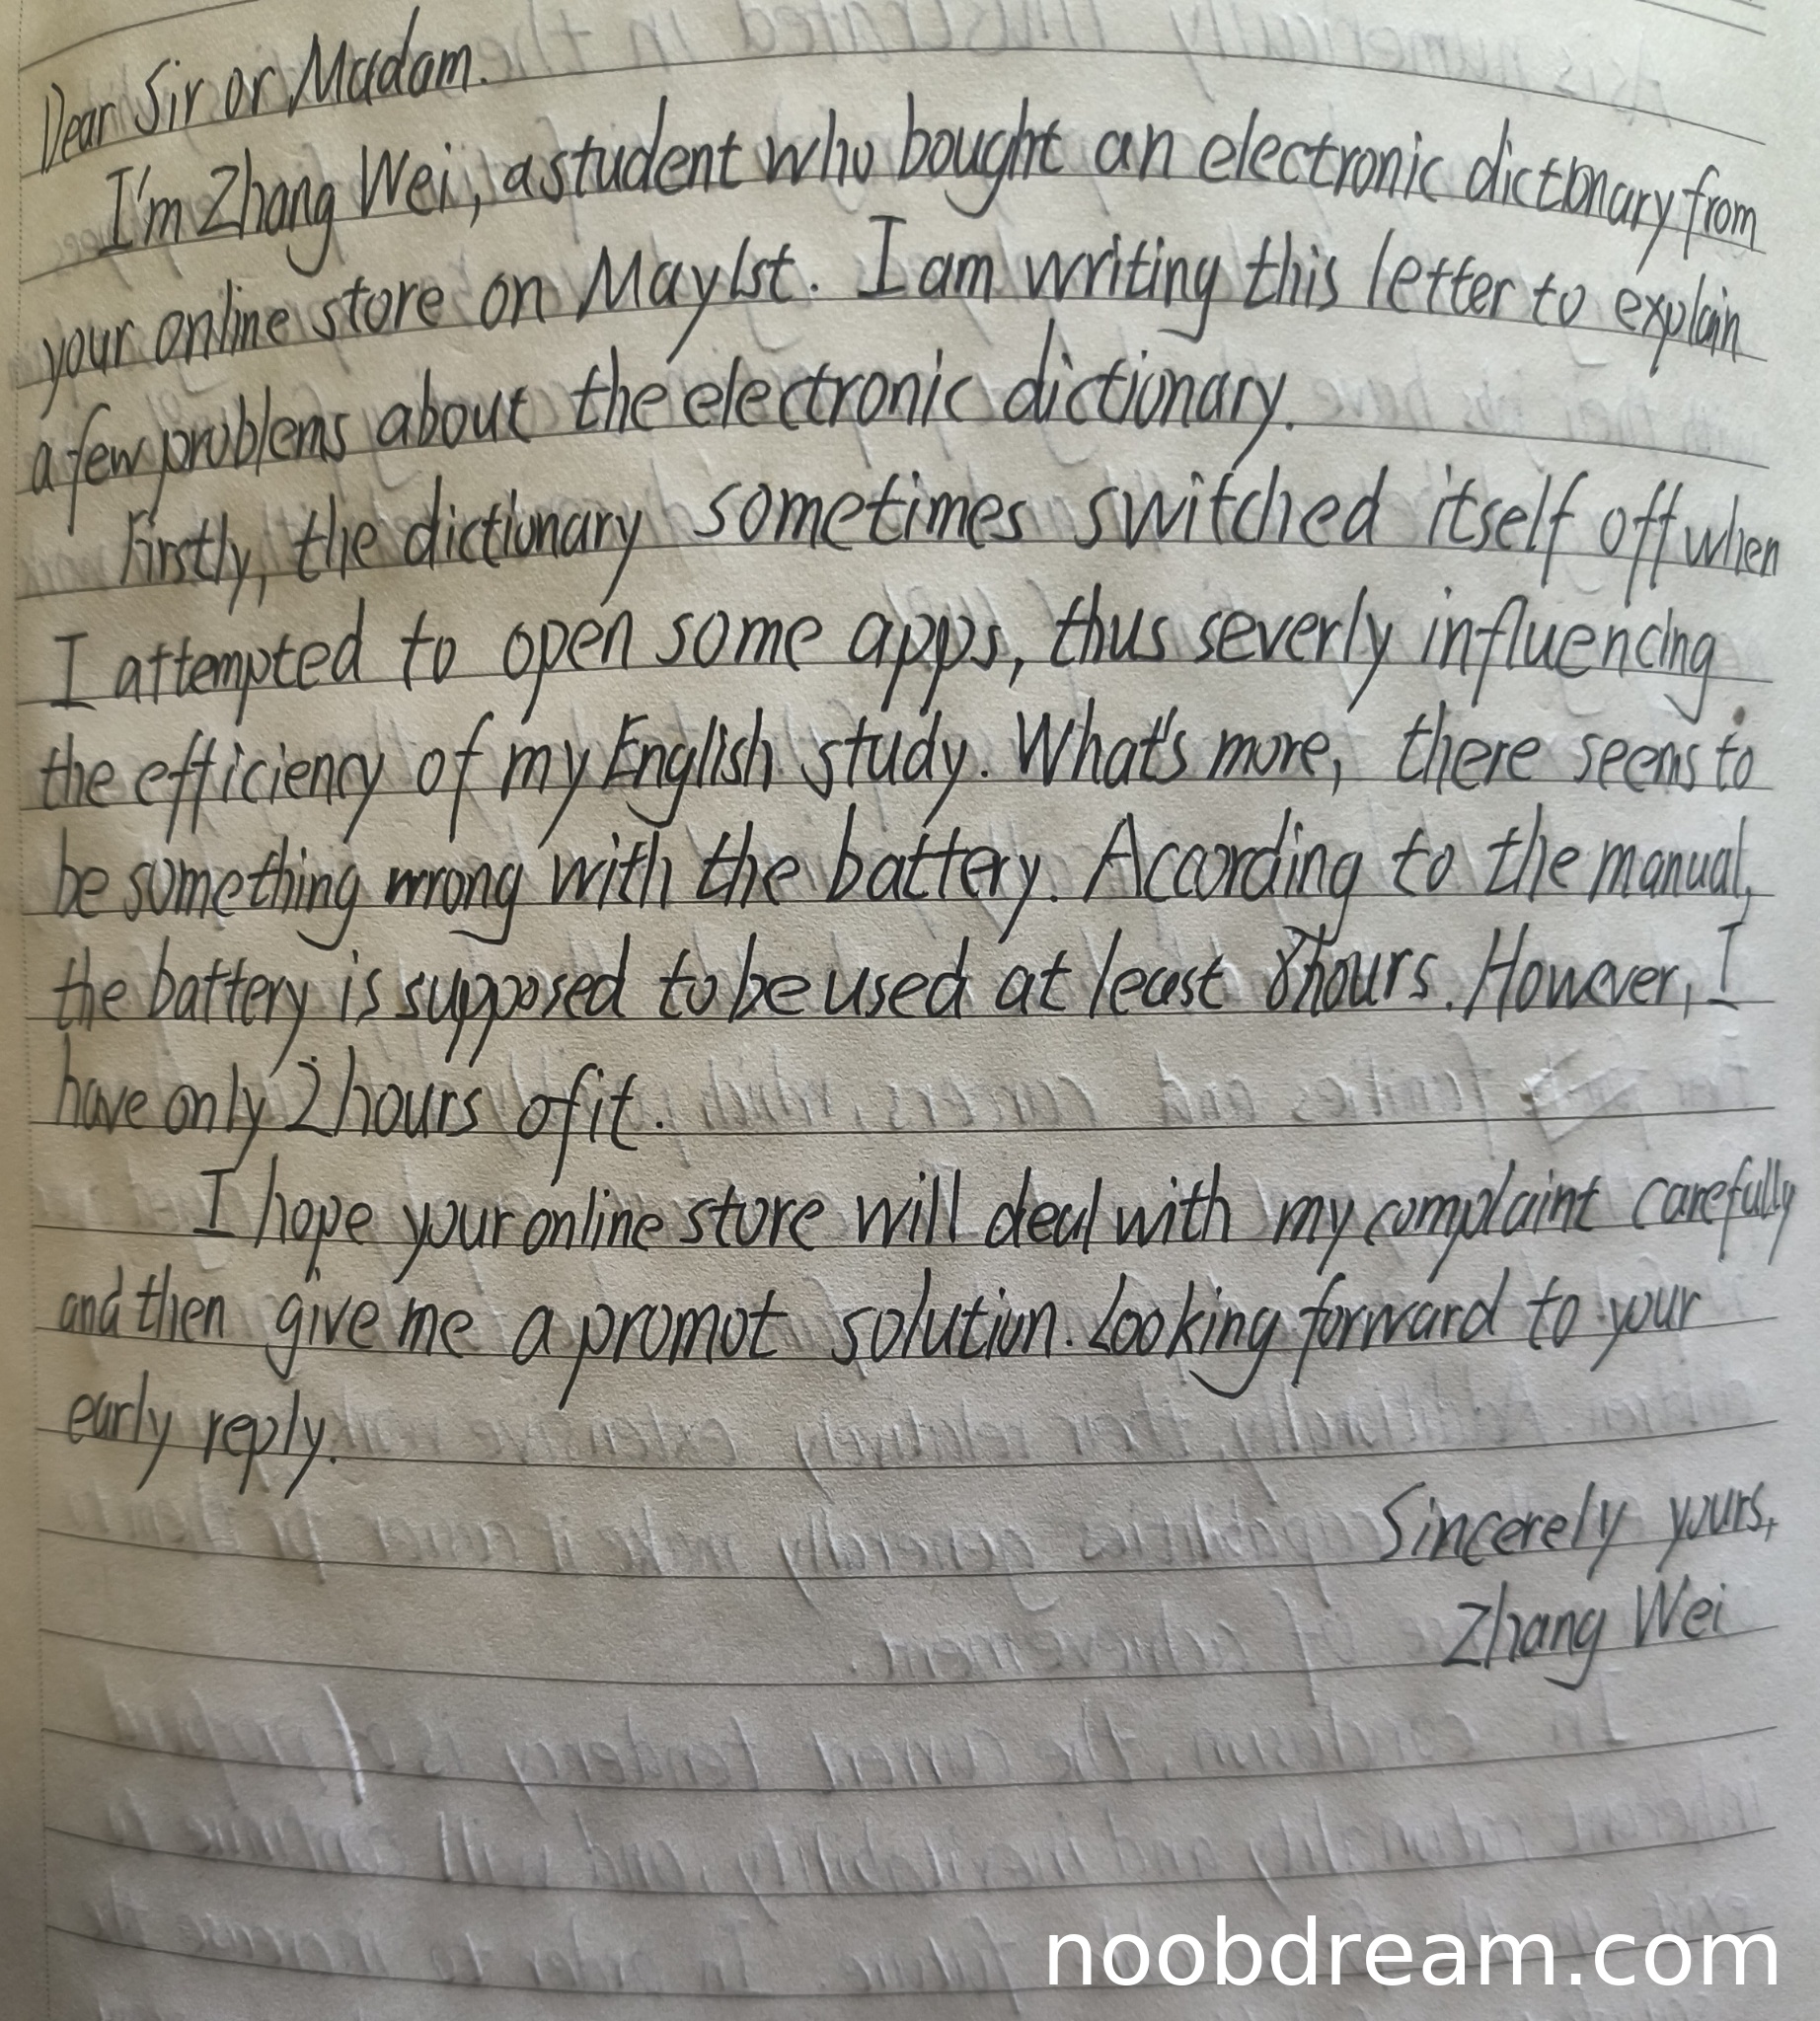 Dear Sir or Madam.
I'm Zhang Wei, a student who bought an electronic dictionary from
your online store on May 1st. I am writing this letter to explain
a few problems about the electronic dictionary.
Firstly, the dictionary sometimes switched itself off when
I attempted to open some apps, thus severly influencing
the efficiency of my English study. What's more, there seems to
be something wrong with the battery. According to the manual,
the battery is supposed to be used at least 8 hours. However, I
have only 2 hours of it.
I hope your online store will deal with my complaint carefully
and then give me a promot solution. Looking forward to your
early reply.
Sincerely yours,
Zhang Wei
noobdream.com